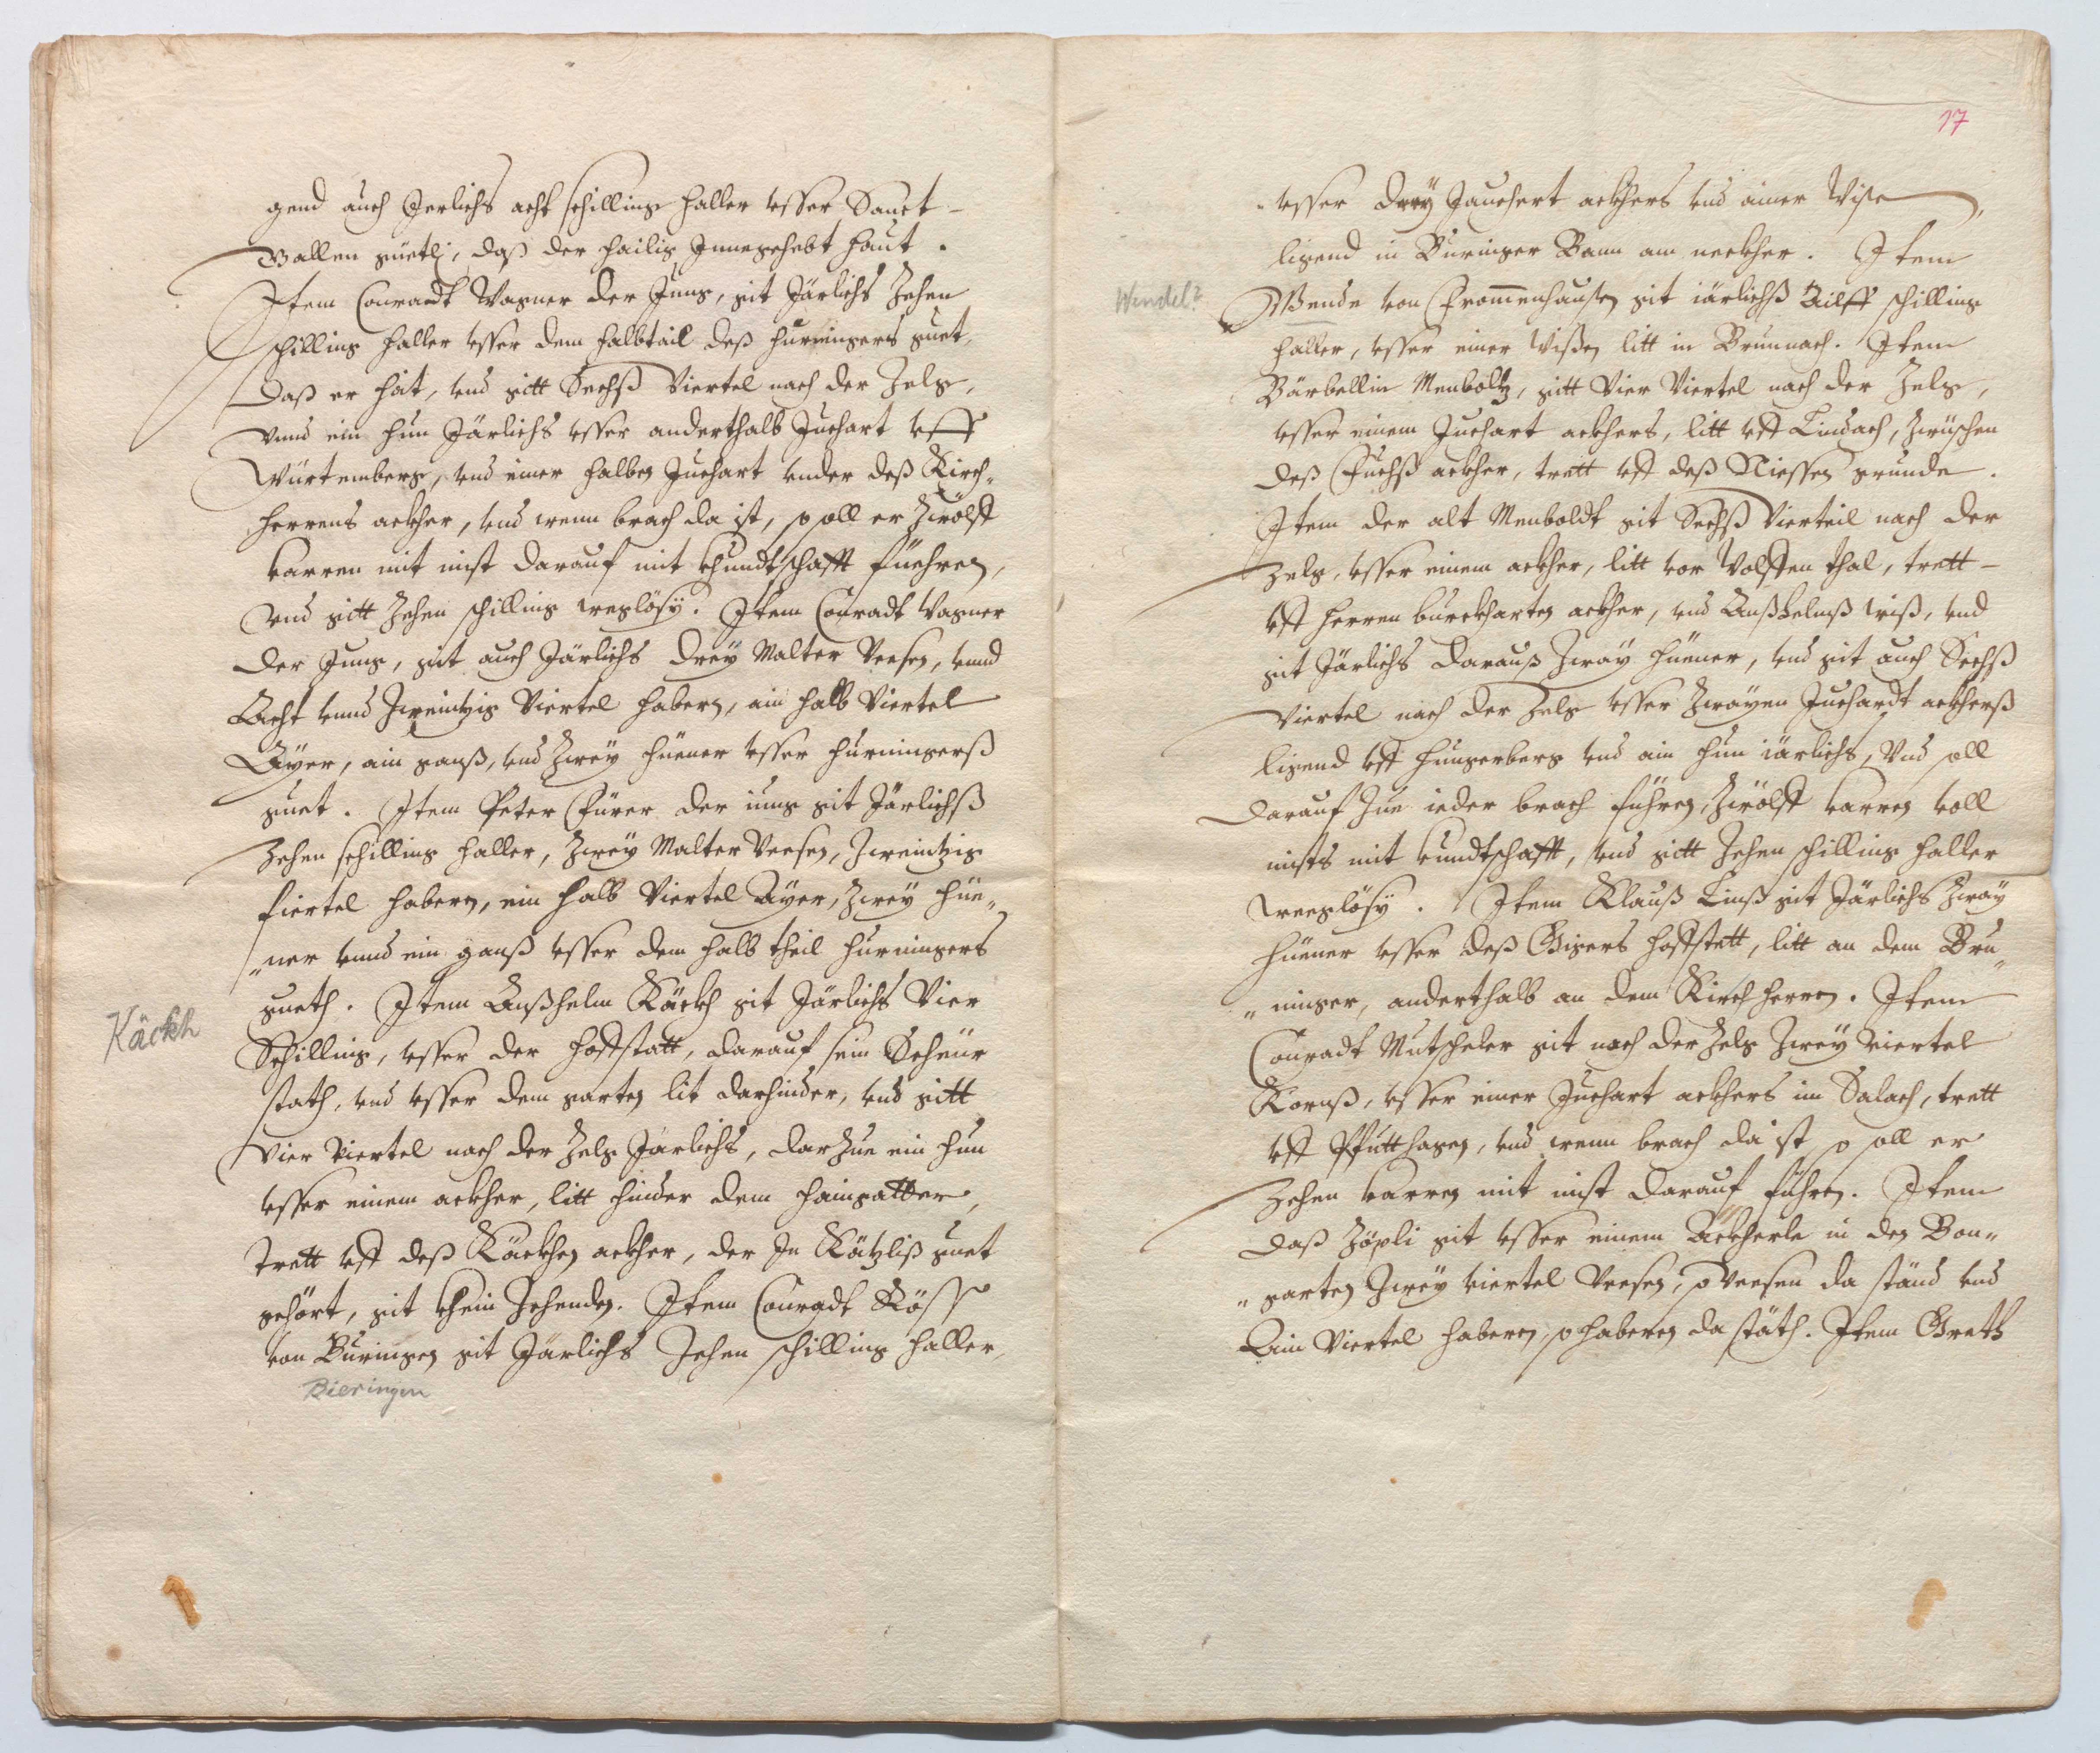 gend auch Jerlichs acht schilling haller vsser Sanct
Gallen güetli, daß der hailig Innegehebt haut.
Item Conradt Wagner der Jung, git Järlichs Zehen
schilling haller vsser dem halbtail deß hurningers guet,
Daß er hat, vnd gitt Sechß Viertel nach der Zelg,
Vnnd ein hun Järlichs vsser anderthalb Juchart vff
Würtemberg, vnd einer halben Juchart vnder deß Kirch-
herrens ackher, vnd wenn brach da ist, so soll er Zwölff
karren mit mist darauf mit khundtschafft füehren,
Vnd gitt Zehen schilling weglösy. Item Conradt Wagner
der Jung, git auch Järlichs drey Malter Veesen, vnnd
Acht vnnd Zweintzig Viertel habern, ain halb Viertel
Ayer, ain ganß, vnd Zwey hüener vsser hurningerß
guet. Item Peter Fürer der iung git Järlichß
Zehen schilling haller, Zwey Malter Veesen, Zweintzig
fiertel habern, ein halb Viertel Ayer, Zwey hüe„
„ner vnnd ein ganß vsser dem halb theil hurningers
gueth. Item Anßhelm Käckh git Järlichs Vier
Käckh
Schilling, vsser der hoffstatt, darauf sein Scheür
stath, vnd vsser dem garten lit darhinder, vnd gitt
Vier Viertel nach der Zelg Järlichs, darZue ein hun
vsser einem ackher, litt hinder dem haingatter,
Trett vff deß Käckhen ackher, der In Kätzliß guet
gehört, git khein Zehenden. Item Conradt Röss
von Buringen git Järlichs Zehen schilling haller,
Bieringen
17
vsser drey Jauchert ackhers vnd ainer Wise,
ligend in Buringer Bann am neckher. Item
Wendel?
Wende von Frommenhausen git iärlichß Ailff schilling
haller, vsser einer Wißen litt in Brunnach. Item
Bärbellin Menboltz, gitt Vier Viertel nach der Zelg,
vsser einem Juchart ackhers, litt vff Lindach, Zwüschen
deß Fuchß ackher, trett vff deß Niessen grunde.
Item der alt Menboldt git Sechß Vierteil nach der
Zelg, vsser einem ackher, litt vor Wolffen thal, trett
vff herren burckharten ackher, vnd Anßhelmß wiß, vnd
git Järlichs darauß Zway hüener, vnd git auch Sechß
Viertel nach der Zelg vsser Zwayen Juchardt ackherß
ligend vff hungerberg vnd ain hun iärlichs, Vnd soll
darauf Zue ieder brach führen, Zwölff karren voll
mists mit kundtschafft, vnd gitt Zehen schilling haller
weeglösy. Item Klauß Linß git Järlichs Zway
hüener vsser deß Gigers hoffstett, litt an dem Bru„
„ninger, anderthalb an dem Kirchherren. Item
Conradt Mutscheler git nach der Zelg Zwey viertel
Kornß, vsser einer Juchart ackhers im Salach, trett
vff Pfutthagen, vnd wenn brach da ist so soll er
Zehen karren mit mist darauf führen. Item
daß Zöpli git vsser einem Äckherle in den Bon„
„garten Zwey viertel Veesen, so veesen da ständ vnd
Ain Viertel haberen, so haberen da stäth. Item Greth